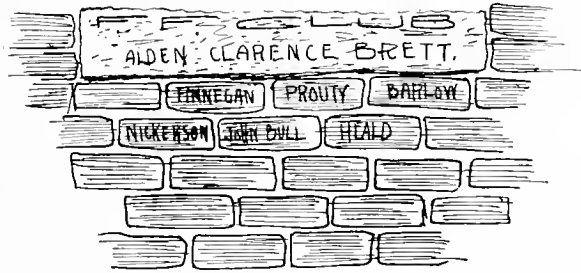 F F CLUB
ALDEN CLARENCE BRETT.
FINNEGAN PROUTY BARLOW
NICKERSON JOHN BULL HEALD